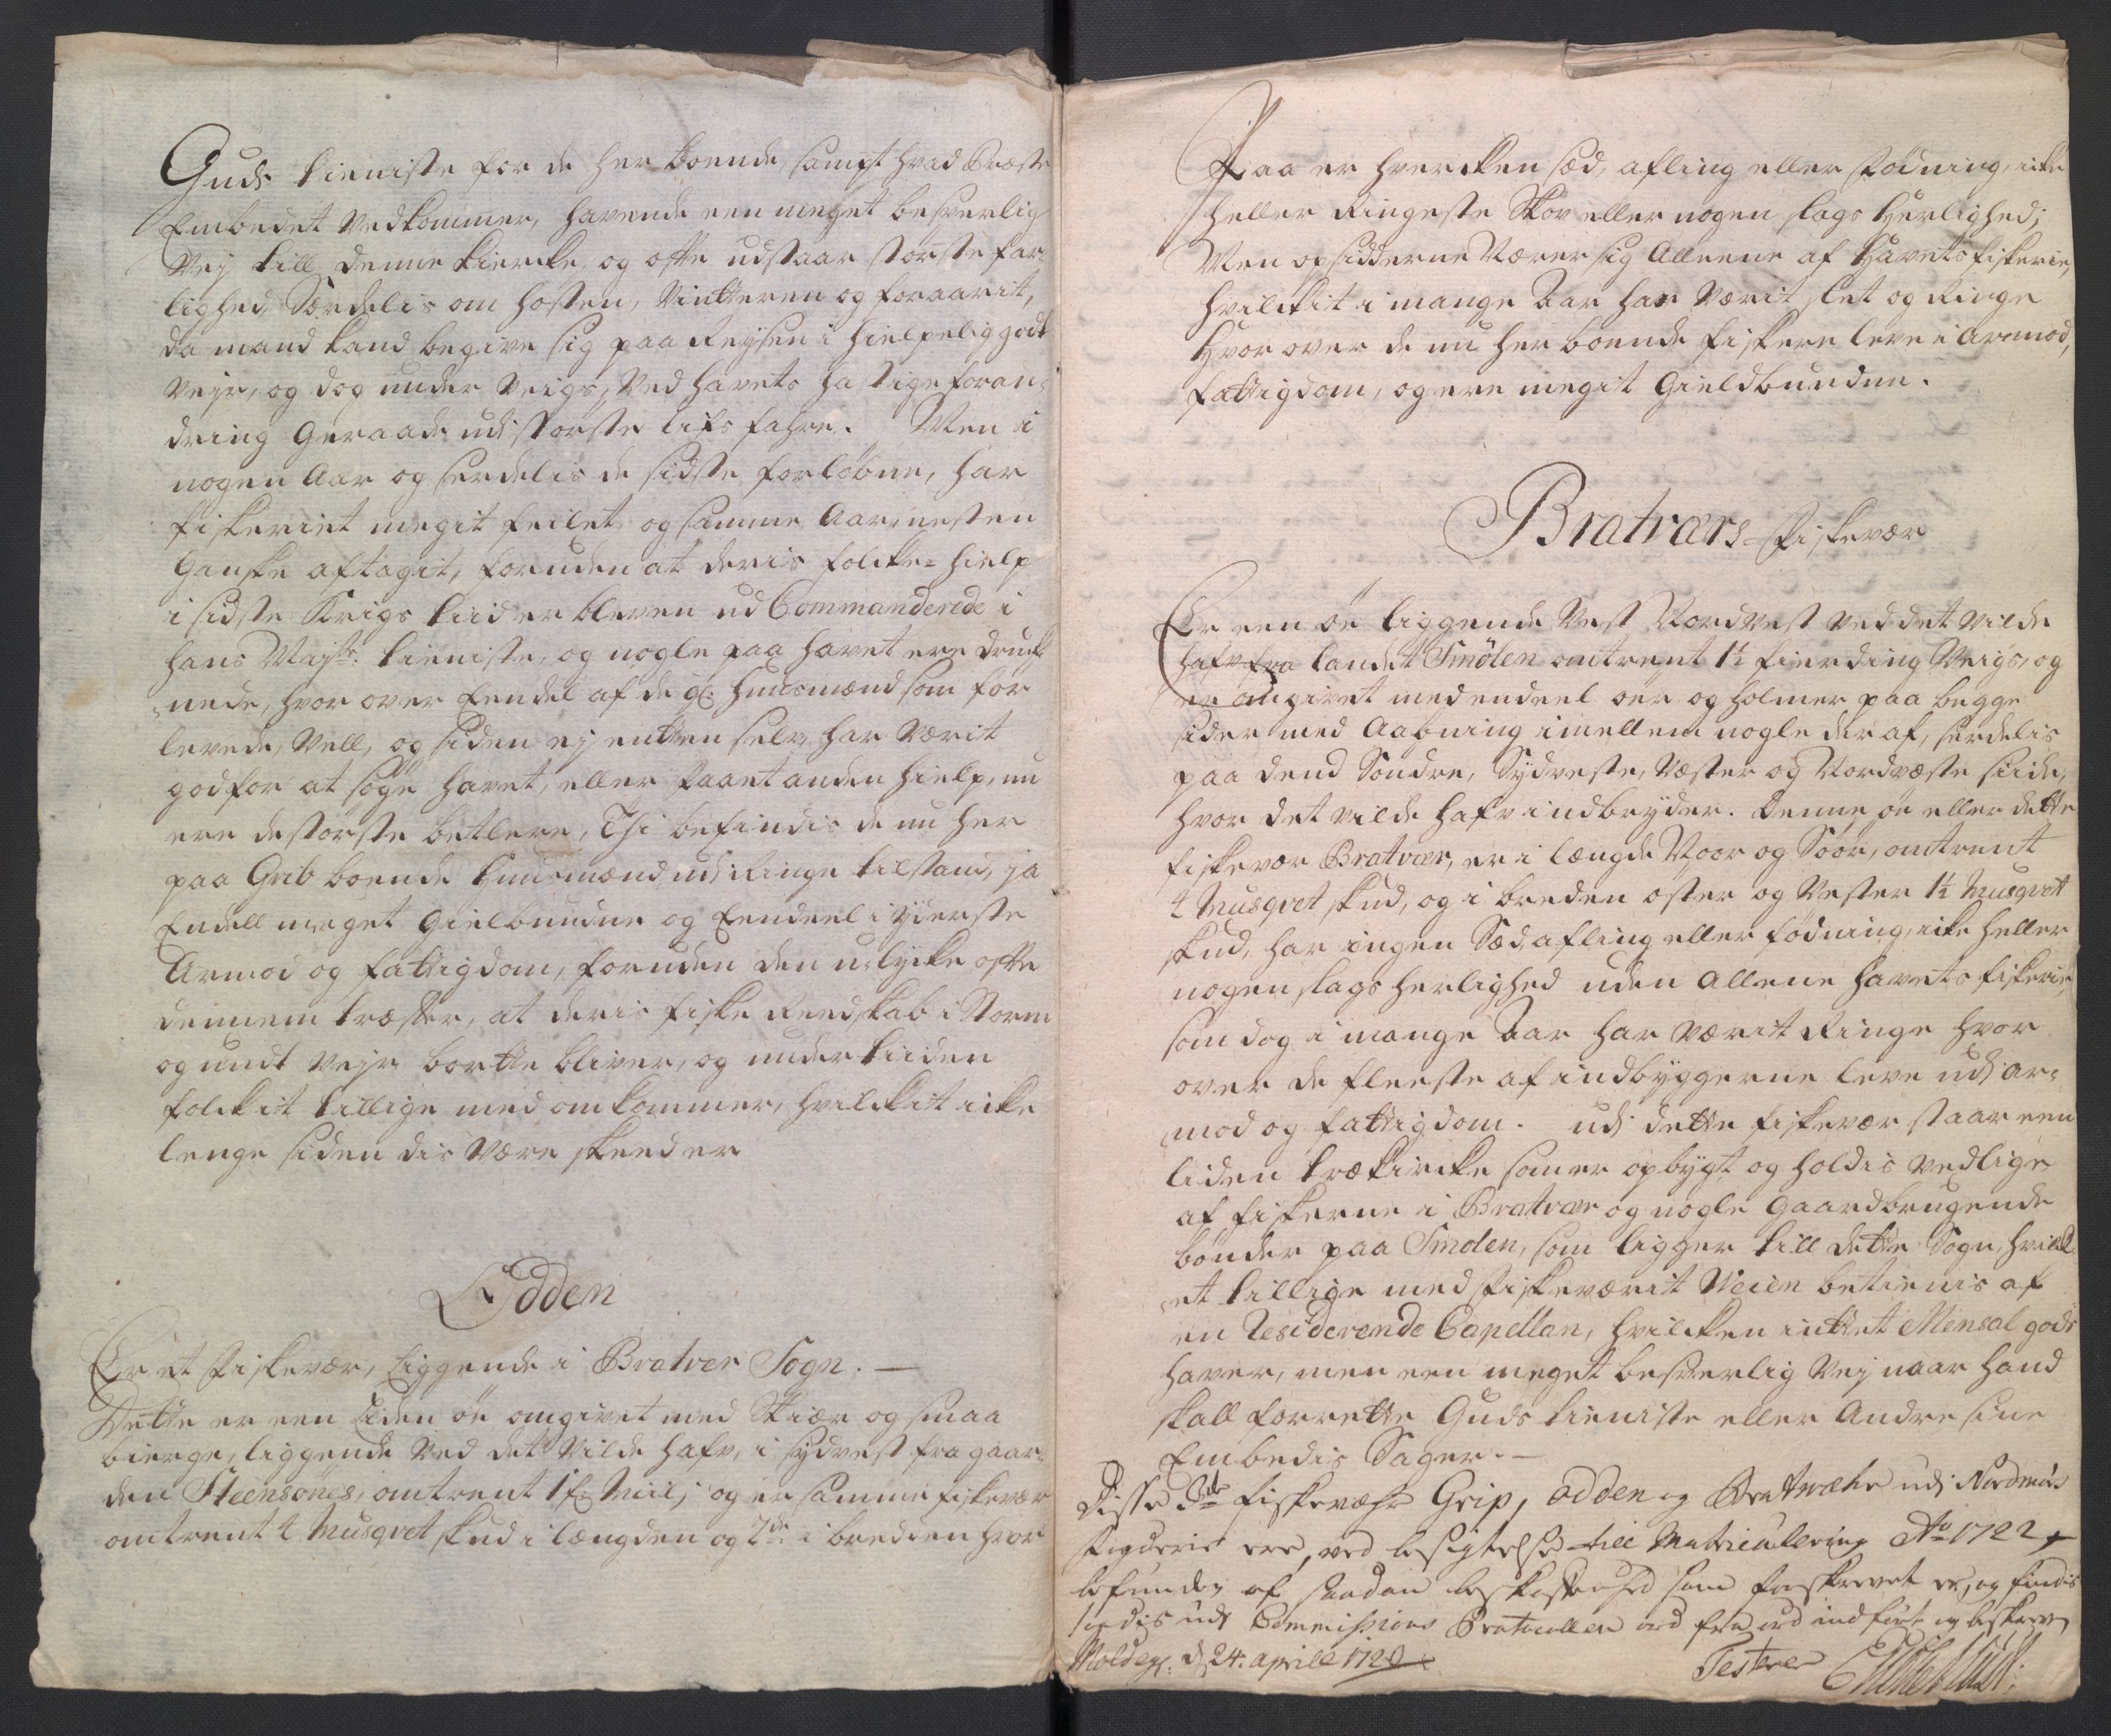 Guds tieniste for de her boende, sampt hvad Præste
Embedet vedkommer, havende een meget besverlig
Vej till denne kiercke, og offte udstaar største far-
lighed, Særdelis om høsten, Vintteren og foraarit,
da mand kand begive sig paa Reysen i hielpelig godt
Vejr, og dog under Veigs, ved havets hastige foran-
dring Geraade udi største lifs fahre. Men i
nogen Aar og serdelis de sidste forløbne, har
fiskeriet megit feilet, og samme Aar, nesten
Ganske aftagit, foruden at deris folcke-hielp
i sidste Krigs tiid er bleven ud Commanderede i
hans Mayts: tieniste, og nogle paa havet ere druck-
nede, hvor over Eendel af de gl: huusmænd som før
levede, Vell, og siden ej entten selv har værit
god for at søge havet, eller faaet anden hielp, nu
ere de største betlere, Thi befindis de nu her
paa Grib boende huusmænd, udi Ringe tilstand, ja
Endell meget Gielbundne og Eendeel i yderste
Armod og fattigdom, foruden den ulycke offte
dennem træffer, at deris fiske Reedskab i Storm
og undt Vejr bortte bliver, og under tiiden
folckit tillige med omkommer, hvilckit icke
lenge siden dis være skeed er
Odden
Er et fiskevær, liggende i Bratver Sogn. —
Dette er een Liden øe omgivet med Skiær og smaa
bierge, liggende ved det Vilde hafv, i sydvest fra gaar-
den Steensønes, omtrent 1 f: Miil; og er samme fiskevær
omtrent 4 Musqvet skud i længden og 2de i bredden hvor
Paa er hvercken sæd, afling eller fødning, icke
heller Ringeste Skov eller nogen slags Herlighed;
Men opsidderne Nærer sig Alleene af Havets fiskerie,
hvilckit i mange Aar har værit slet og Ringe
Hvor over de nu her boende fiskere leve i Armod,
fattigdom, og ere megit Gieldbunden.
Bratværs-Fiskevær
Er een øe liggende Vest Nordvest ved det vilde
hafv fra landet Smølen omtrent 1½ fierding Veigs, og
er omgivet med endeel øer og holmer paa begge
sider med Aabning imellem nogle der af, serdelis
paa dend Søndre, Sydveste, Væster og Nordvæste siide,
hvor det vilde hafv indbryder. Denne øe eller dette
fiskevær Bratvær, er i længde Noor og Søør, omtrent
4 Musqvet skud, og i breden øster og Vester 1½ Musqvet
skud, har ingen Sæd, afling eller fødning, icke heller
nogen slags herlighed uden Allene havets fiskerie,
som dog i mange Aar har værit Ringe hvor
over de fleeste af indbyggerne leve udi ar-
mod og fattigdom. udi dette fiskevær staar een
liden trækircke som er opbygt og holdis vedlige
af fiskerne i Bratvær og nogle Gaardbrugende
bønder paa Smølen, som ligger till dette Sogn, hvilck-
et tillige med fiskeværit Veien betienis af
en Residerende Capellan, hvilcken inttet Mensal gods
haver, men een meget besverlig Vej naar hand
skall forrette Guds tieniste eller Andre sine
Embedis Sager. —
Disse 3de fiskevæhr Grip, Odden og Bratvæhr udj Nordmørs
fogderie ere, ved besigtelse till Matriculering Ao 1722
befunden af saadan beskaffenhed som forskrevet er, og findis
ligedis udj Commissions Protocollen ord fra ord indført og beskreven
Molde d: 24. aprill 1720
Testerer